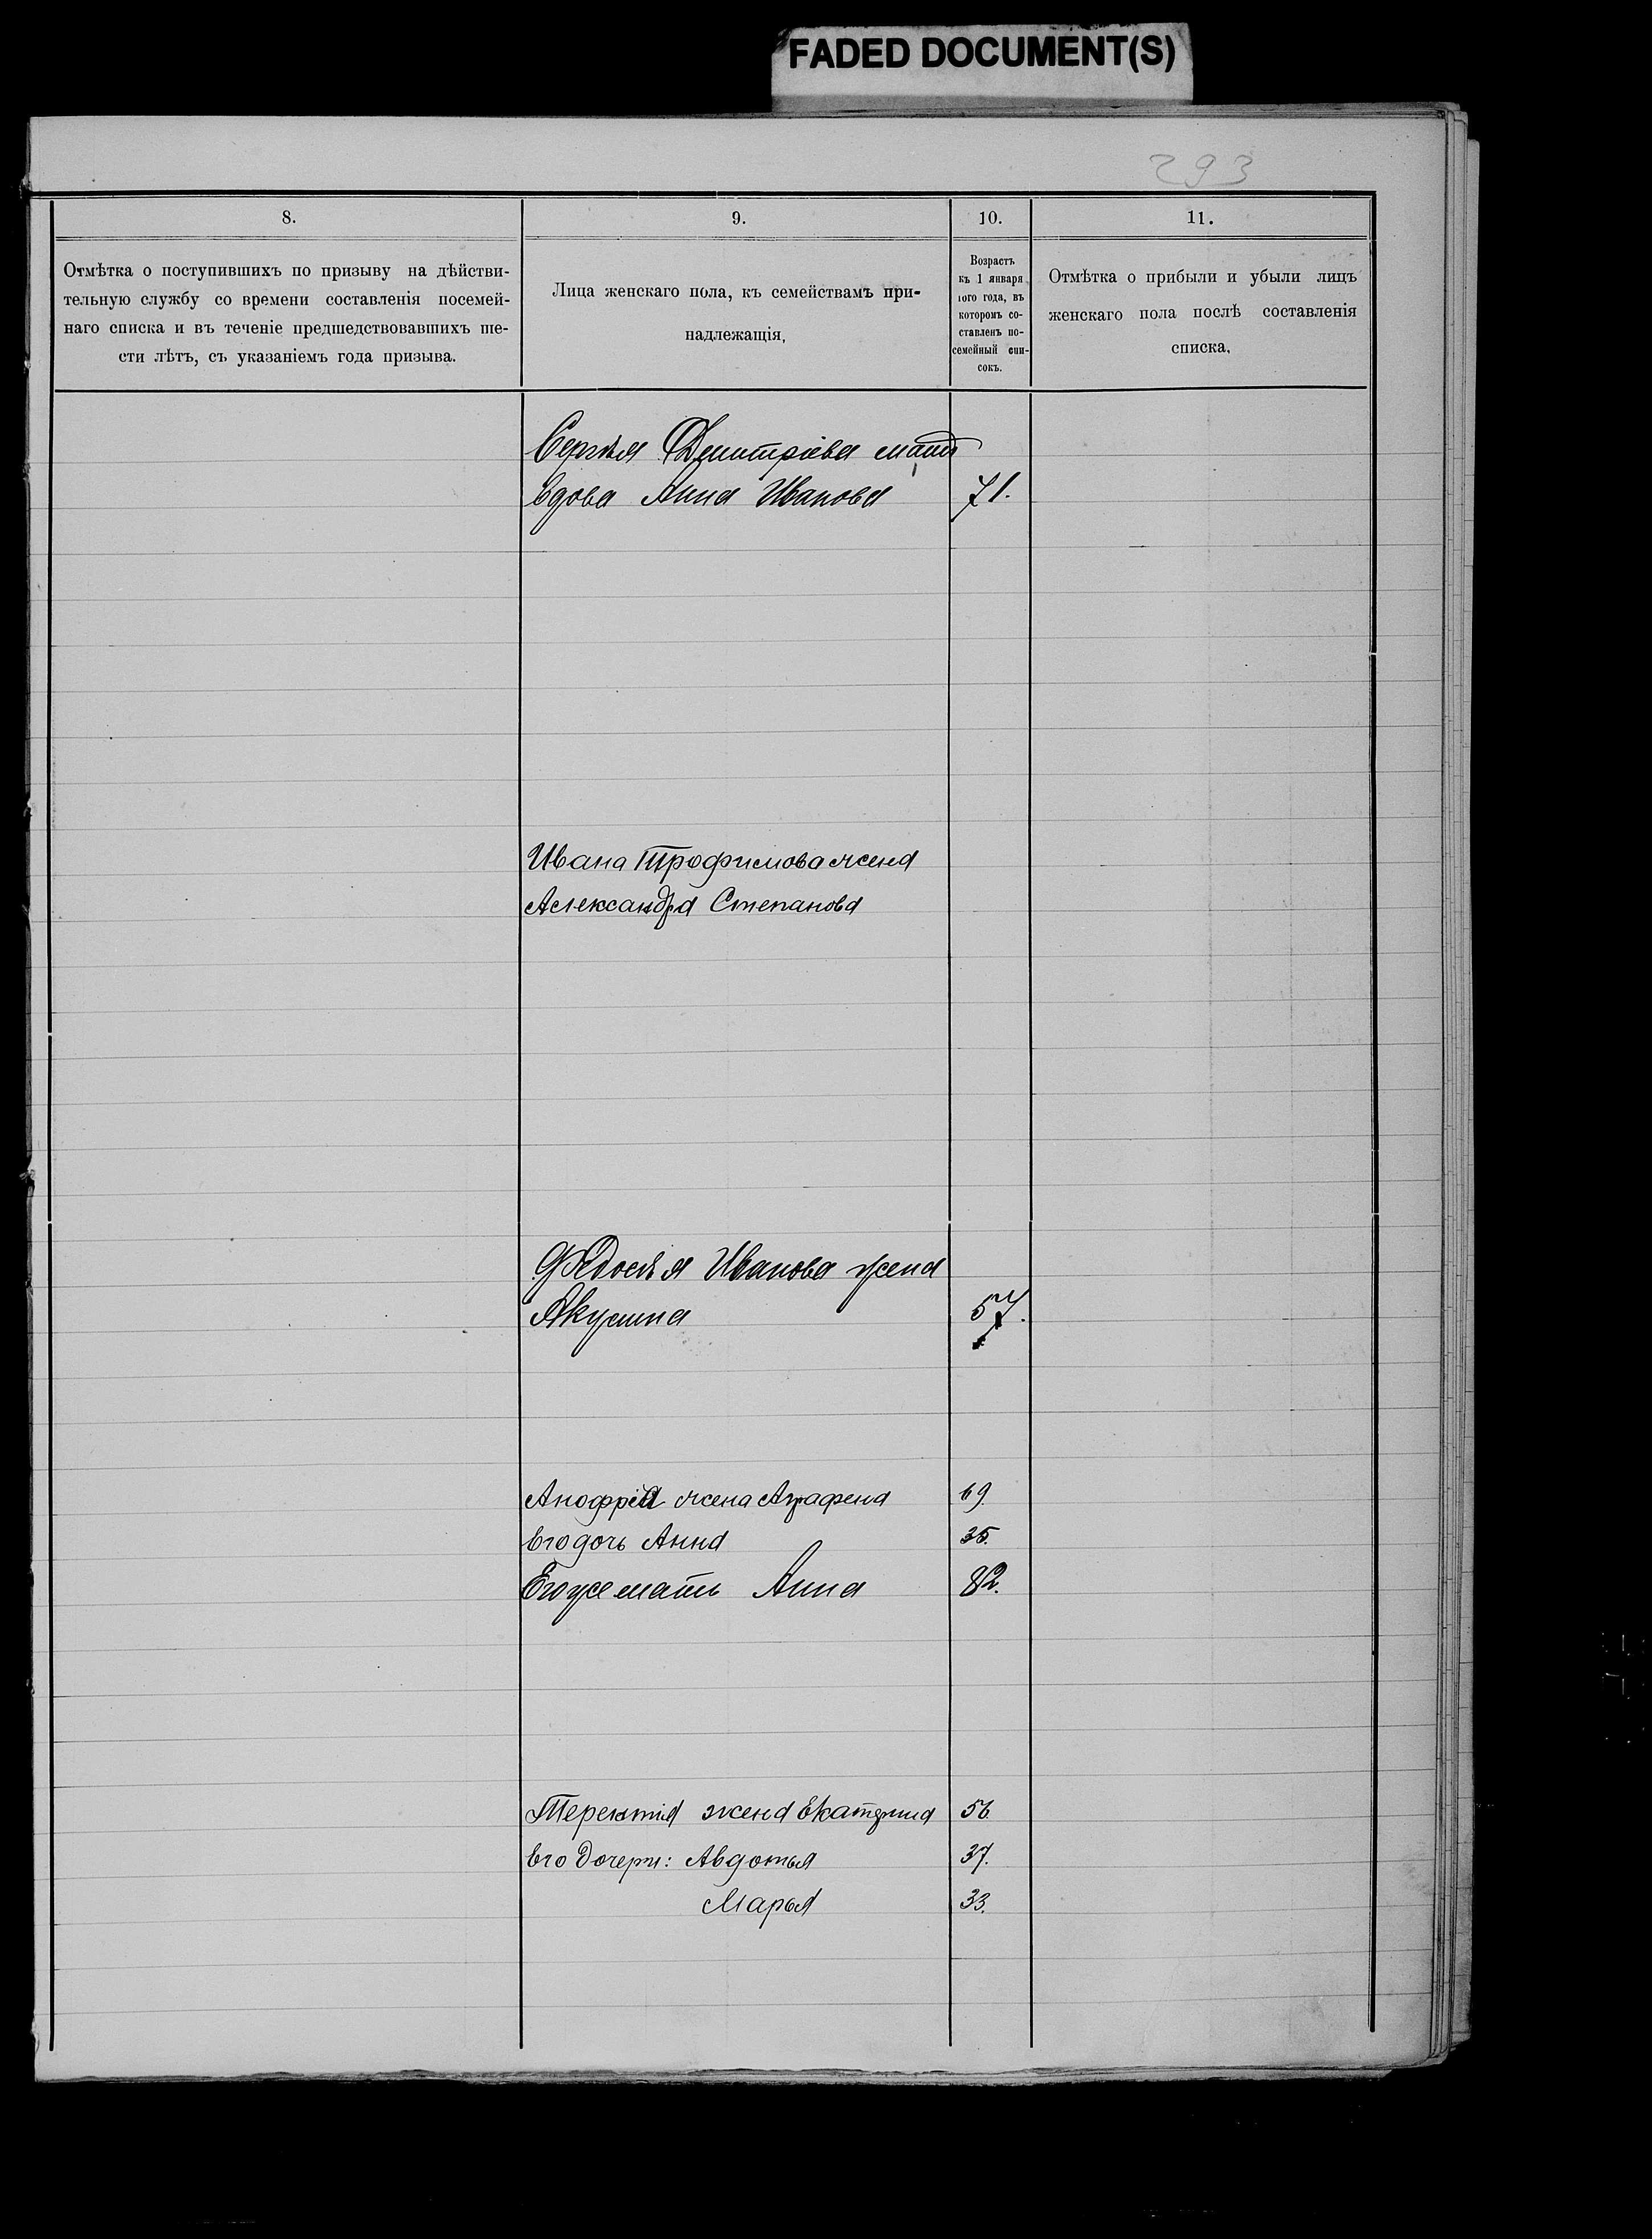 FADED DOCUMENT(S)
293
8.
9.
10.
11.
Отмѣтка о поступившихъ по призыву на дѣйстви-
тельную службу со времени составленія посемей-
наго списка и въ теченіе предшедствовавшихъ ше-
сти лѣтъ, съ указаніемъ года призыва.
Лица женскаго пола, къ семействамъ при-
надлежащія,
Возрастъ
къ 1 января
того года, въ
которомъ со-
ставленъ по-
семейный спи-
сокъ.
Отмѣтка о прибыли и убыли лицъ
женскаго пола послѣ составленія
списка,
Сергѣя Дмитріева мать
вдова Анна Иванова 71.
Ивана Трофимова жена
Александра Степанова
Федосѣя Иванова жена
Акулина 57.
Анофрія жена Аграфена 69.
Его дочь Анна 35.
Его же мать Анна 82.
Терентія жена Екатерина 56
Его дочери: Авдотья 37.
Марья 33.